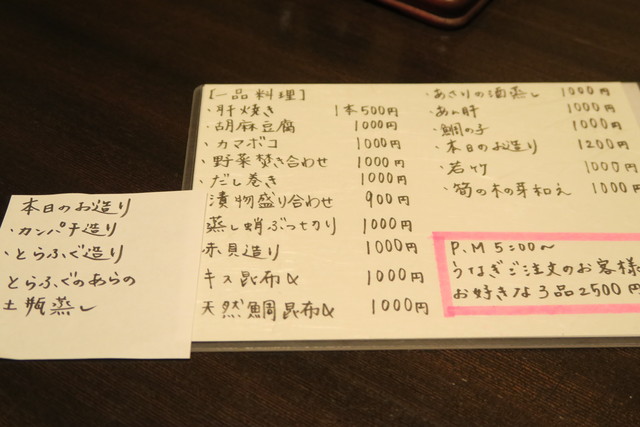 [一品料理]
・肝焼き 1本500円
・胡麻豆腐 1000円
・カマボコ 1000円
・野菜焚き合わせ 1000円
・だし巻き 1000円
漬物盛り合わせ 900円
蒸し蛸ぶつ切り 1000円
赤貝造り 1000円
キス昆布〆 1000円
天然鯛昆布〆 1000円
・あさりの酒蒸し 1000円
・あん肝 1000円
・鯛の子 1000円
・本日のお造り 1200円
・若竹 1000円
・筍の木の芽和え 1000円
P.M 5:00〜
うなぎご注文のお客様
お好きな3品2500円
本日のお造り
・カンパチ造り
・とらふぐ造り
とらふぐのあらの
土瓶蒸し